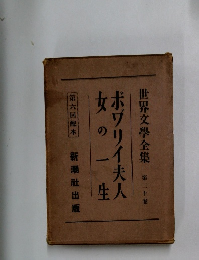 世界文學全集
第二十卷
ボヷリイ夫人
女の一生
第六回配本
新潮社出版